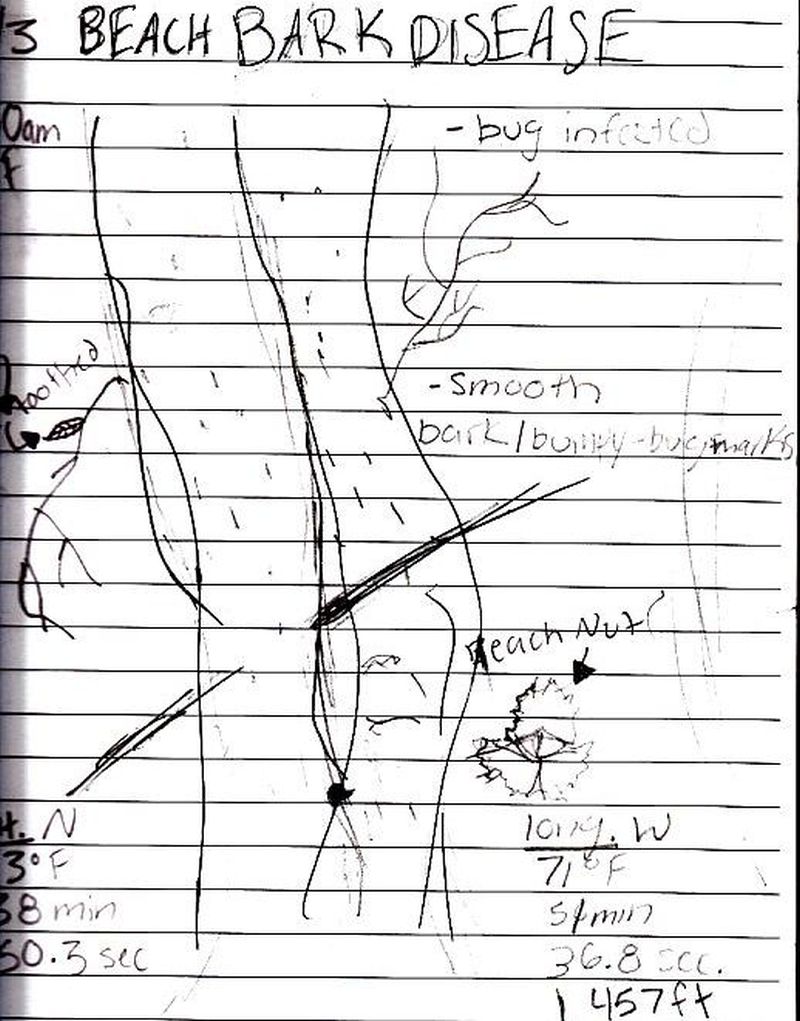 3 BEACH BARK DISEASE
0am
F
- bug infected
toothed
- Smooth
bark/bumpy-bug marks
Beach Nut
t. N
3°F
38 min
50.3 sec
long. W
71°F
51min
36.8 sec.
1 457ft